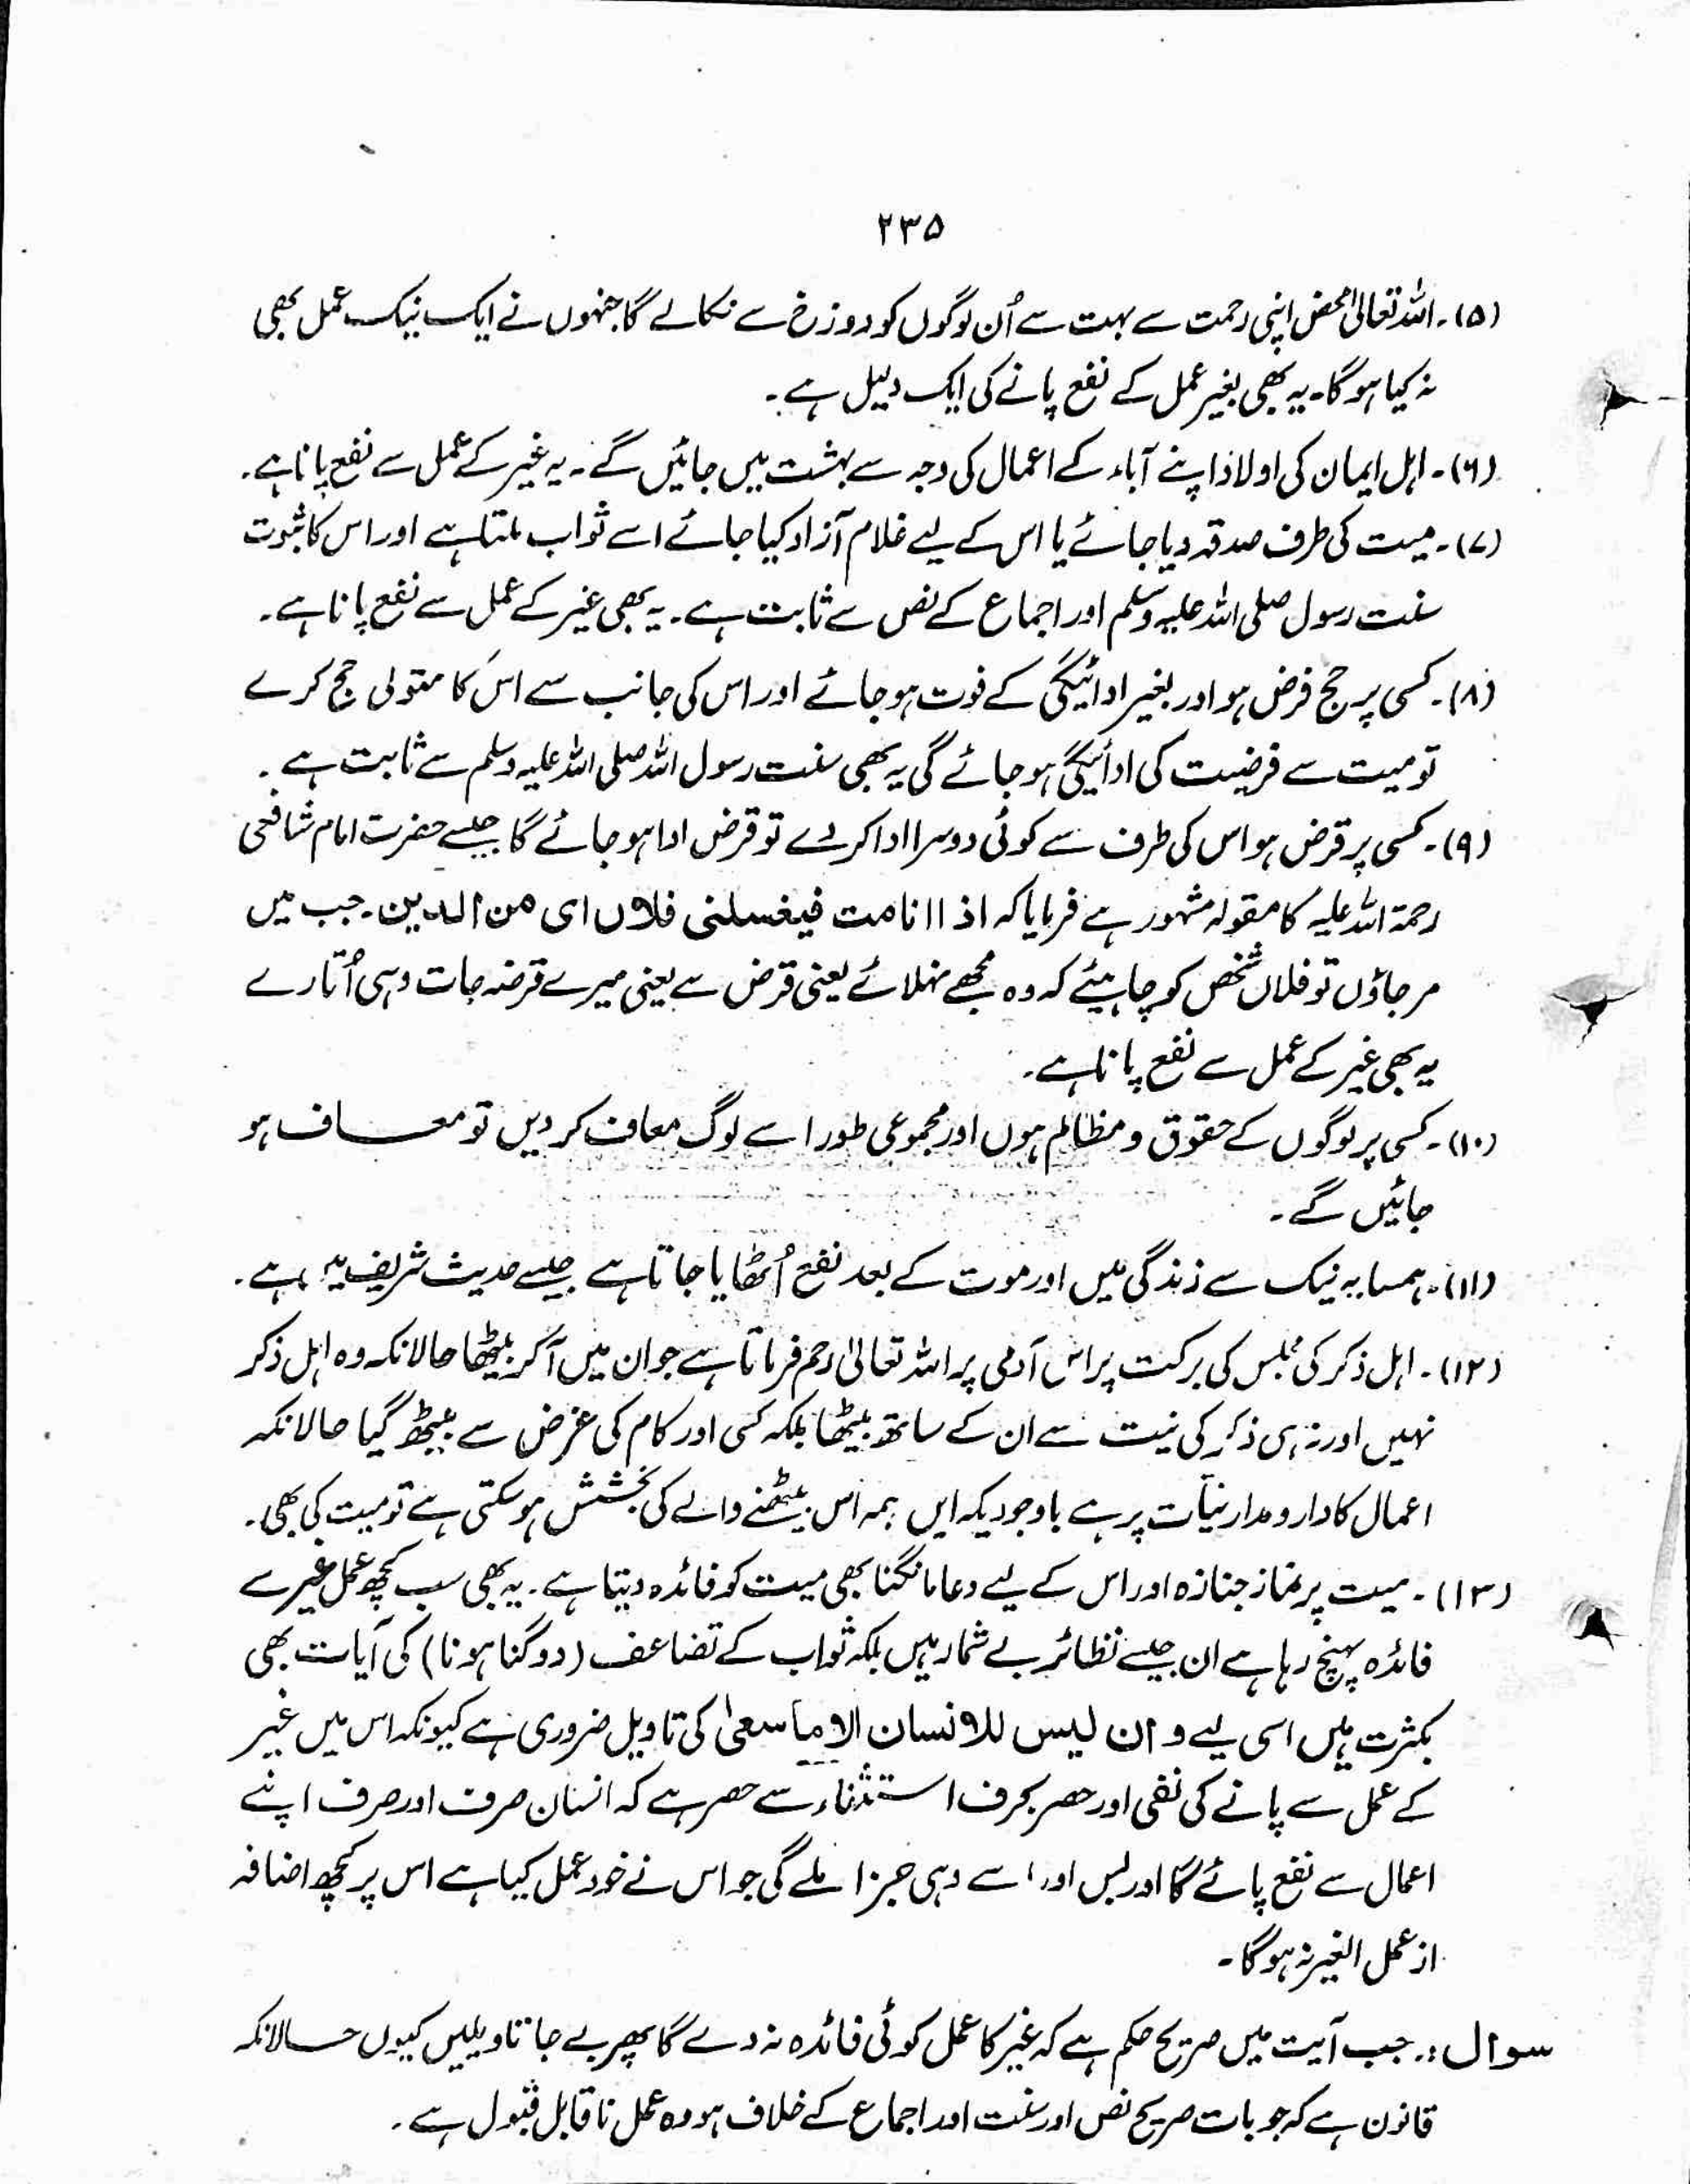 ۲۳۵
(۵)۔ اللہ تعالیٰ محض اپنی رحمت سے بہت سے اُن لوگوں کو دوزخ سے نکالے گا جنہوں نے ایک نیک عمل بھی
نہ کیا ہو گا۔ یہ بھی بغیر عمل کے نفع پانے کی ایک دلیل ہے۔
(۶)۔ اہل ایمان کی اولاد اپنے آباء کے اعمال کی وجہ سے بہشت میں جائیں گے۔ یہ غیر کے عمل سے نفع پانا ہے۔
(۷)۔ میت کی طرف صدقہ دیا جائے یا اس کے لیے غلام آزاد کیا جائے اسے ثواب ملتا ہے اور اس کا ثبوت
سنت رسول صلی اللہ علیہ وسلم اور اجماع کے نص سے ثابت ہے۔ یہ بھی غیر کے عمل سے نفع پانا ہے۔
(۸)۔ کسی پر حج فرض ہو اور بغیر ادائیگی کے فوت ہو جائے اور اس کی جانب سے اس کا متولی حج کرے
تو میت سے فرضیت کی ادائیگی ہو جائے گی یہ بھی سنت رسول اللہ صلی اللہ علیہ وسلم سے ثابت ہے۔
(۹)۔ کسی پر قرض ہو اس کی طرف سے کوئی دوسرا ادا کر دے تو قرض ادا ہو جائے گا جیسے حضرت امام شافعی
رحمۃ اللہ علیہ کا مقولہ مشہور ہے فرمایا کہ اذا انا مت فیغسلنی فلاں ای من الدین۔ جب میں
مر جاؤں تو فلاں شخص کو چاہیئے کہ وہ مجھے نہلائے یعنی قرض سے یعنی میرے قرضہ جات وہی اُتارے
یہ بھی غیر کے عمل سے نفع پانا ہے۔
(۱۰)۔ کسی پر لوگوں کے حقوق و مظالم ہوں اور مجموعی طور اسے لوگ معاف کر دیں تو معاف ہو
جائیں گے۔
(۱۱)۔ ہمسایہ نیک سے زندگی میں اور موت کے بعد نفع اُٹھایا جاتا ہے جیسے حدیث شریف میں ہے۔
(۱۲)۔ اہل ذکر کی مجلس کی برکت پر اس آدمی پر اللہ تعالیٰ رحم فرماتا ہے جو ان میں آ کر بیٹھا حالانکہ وہ اہل ذکر
نہیں اور نہ ہی ذکر کی نیت سے ان کے ساتھ بیٹھا بلکہ کسی اور کام کی غرض سے بیٹھ گیا حالانکہ
اعمال کا دارو مدار نیات پر ہے باوجودیکہ ایں ہمہ اس بیٹھنے والے کی بخشش ہو سکتی ہے تو میت کی بھی۔
(۱۳)۔ میت پر نماز جنازہ اور اس کے لیے دعا مانگنا بھی میت کو فائدہ دیتا ہے۔ یہ بھی سب کچھ عمل غیر سے
فائدہ پہنچ رہا ہے ان جیسے نظائر بے شمار ہیں بلکہ ثواب کے تضاعف (دوگنا ہونا) کی آیات بھی
بکثرت ہیں اسی لیے و ان لیس للانسان الا ما سعیٰ کی تاویل ضروری ہے کیونکہ اس میں غیر
کے عمل سے پانے کی نفی اور حصر بحرف استثناء سے حصر ہے کہ انسان صرف اور صرف اپنے
اعمال سے نفع پائے گا اور بس اور اسے وہی جزا ملے گی جو اس نے خود عمل کیا ہے اس پر کچھ اضافہ
از عمل الغیر نہ ہو گا۔
سوال :۔ جب آیت میں صریح حکم ہے کہ غیر کا عمل کوئی فائدہ نہ دے گا پھر بے جا تاویلیں کیوں حالانکہ
قانون ہے کہ جو بات صریح نص اور سنت اور اجماع کے خلاف ہو وہ عمل ناقابل قبول ہے۔